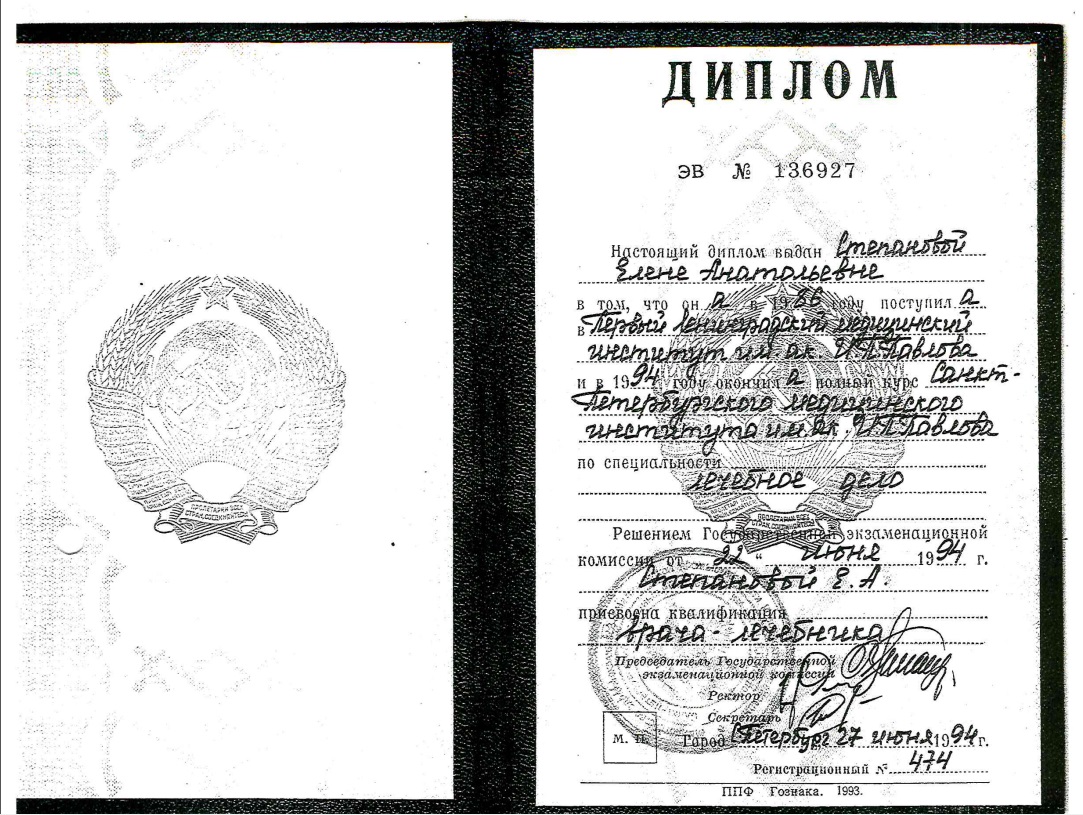 ПРОЛЕТАРИИ ВСЕХ
СТРАН, СОЕДИНЯЙТЕСЬ!
ДИПЛОМ
ЭВ № 136927
Настоящий диплом выдан Степановой
Елене Анатольевне
в том, что он а в 1986 году поступил а
в Первый Ленинградский медицинский
институт им. ак. И.П.Павлова
и в 1994 году окончил а полный курс Санкт-
Петербургского медицинского
института им. ак. И.П.Павлова
по специальности
лечебное дело
ПРОЛЕТАРИИ ВСЕХ
СТРАН, СОЕДИНЯЙТЕСЬ!
Решением Государственной экзаменационной
комиссии от „ 22 “ июня 1994 г.
Степановой Е.А.
присвоена квалификация
врача-лечебника
Председатель Государственной
экзаменационной комиссии
Ректор
Секретарь
М. П.
Город С.Петербург 27 июня 1994 г.
Регистрационный № 474
ППФ Гознака. 1993.